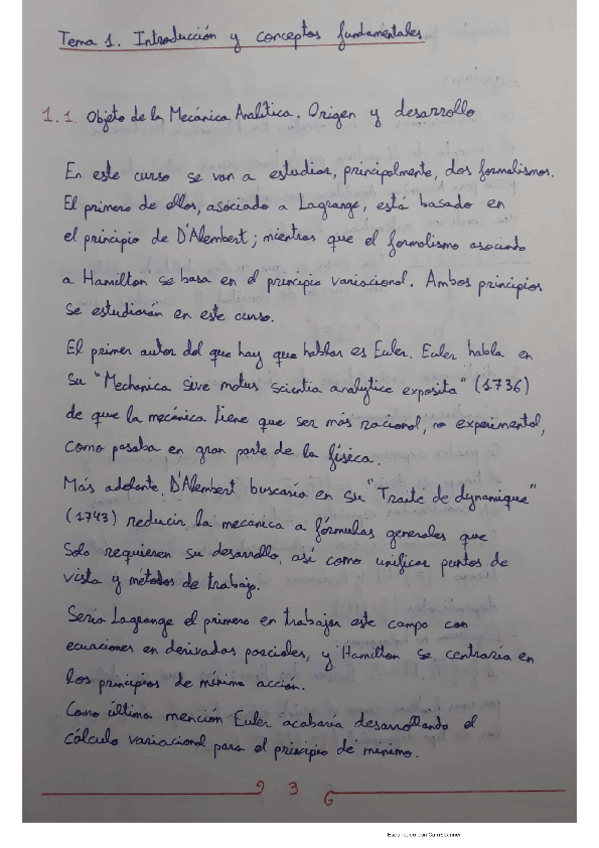 Tema 1. Introducción y conceptos fundamentales
1.1 Objeto de la Mecánica Analítica. Origen y desarrollo
En este curso se van a estudiar, principalmente, dos formalismos.
El primero de ellos, asociado a Lagrange, está basado en
el principio de D'Alembert; mientras que el formalismo asociado
a Hamilton se basa en el principio variacional. Ambos principios
se estudiarán en este curso.
El primer autor del que hay que hablar es Euler. Euler habla en
su "Mechanica sive motus scientia analytice exposita" (1736)
de que la mecánica tiene que ser más racional, no experimental,
como pasaba en gran parte de la física.
Más adelante, D'Alembert buscaría en su "Traite de dynamique"
(1743) reducir la mecanica a fórmulas generales que
solo requieren su desarrollo, así como unificar puntos de
vista y métodos de trabajo.
Sería Lagrange el primero en trabajar este campo con
ecuaciones en derivadas parciales, y Hamilton se centraría en
los principios de mínima acción.
Como última mención Euler acabaría desarrollando el
cálculo variacional para el principio de mínimo.
9 3 6
Escaneado con CamScanner